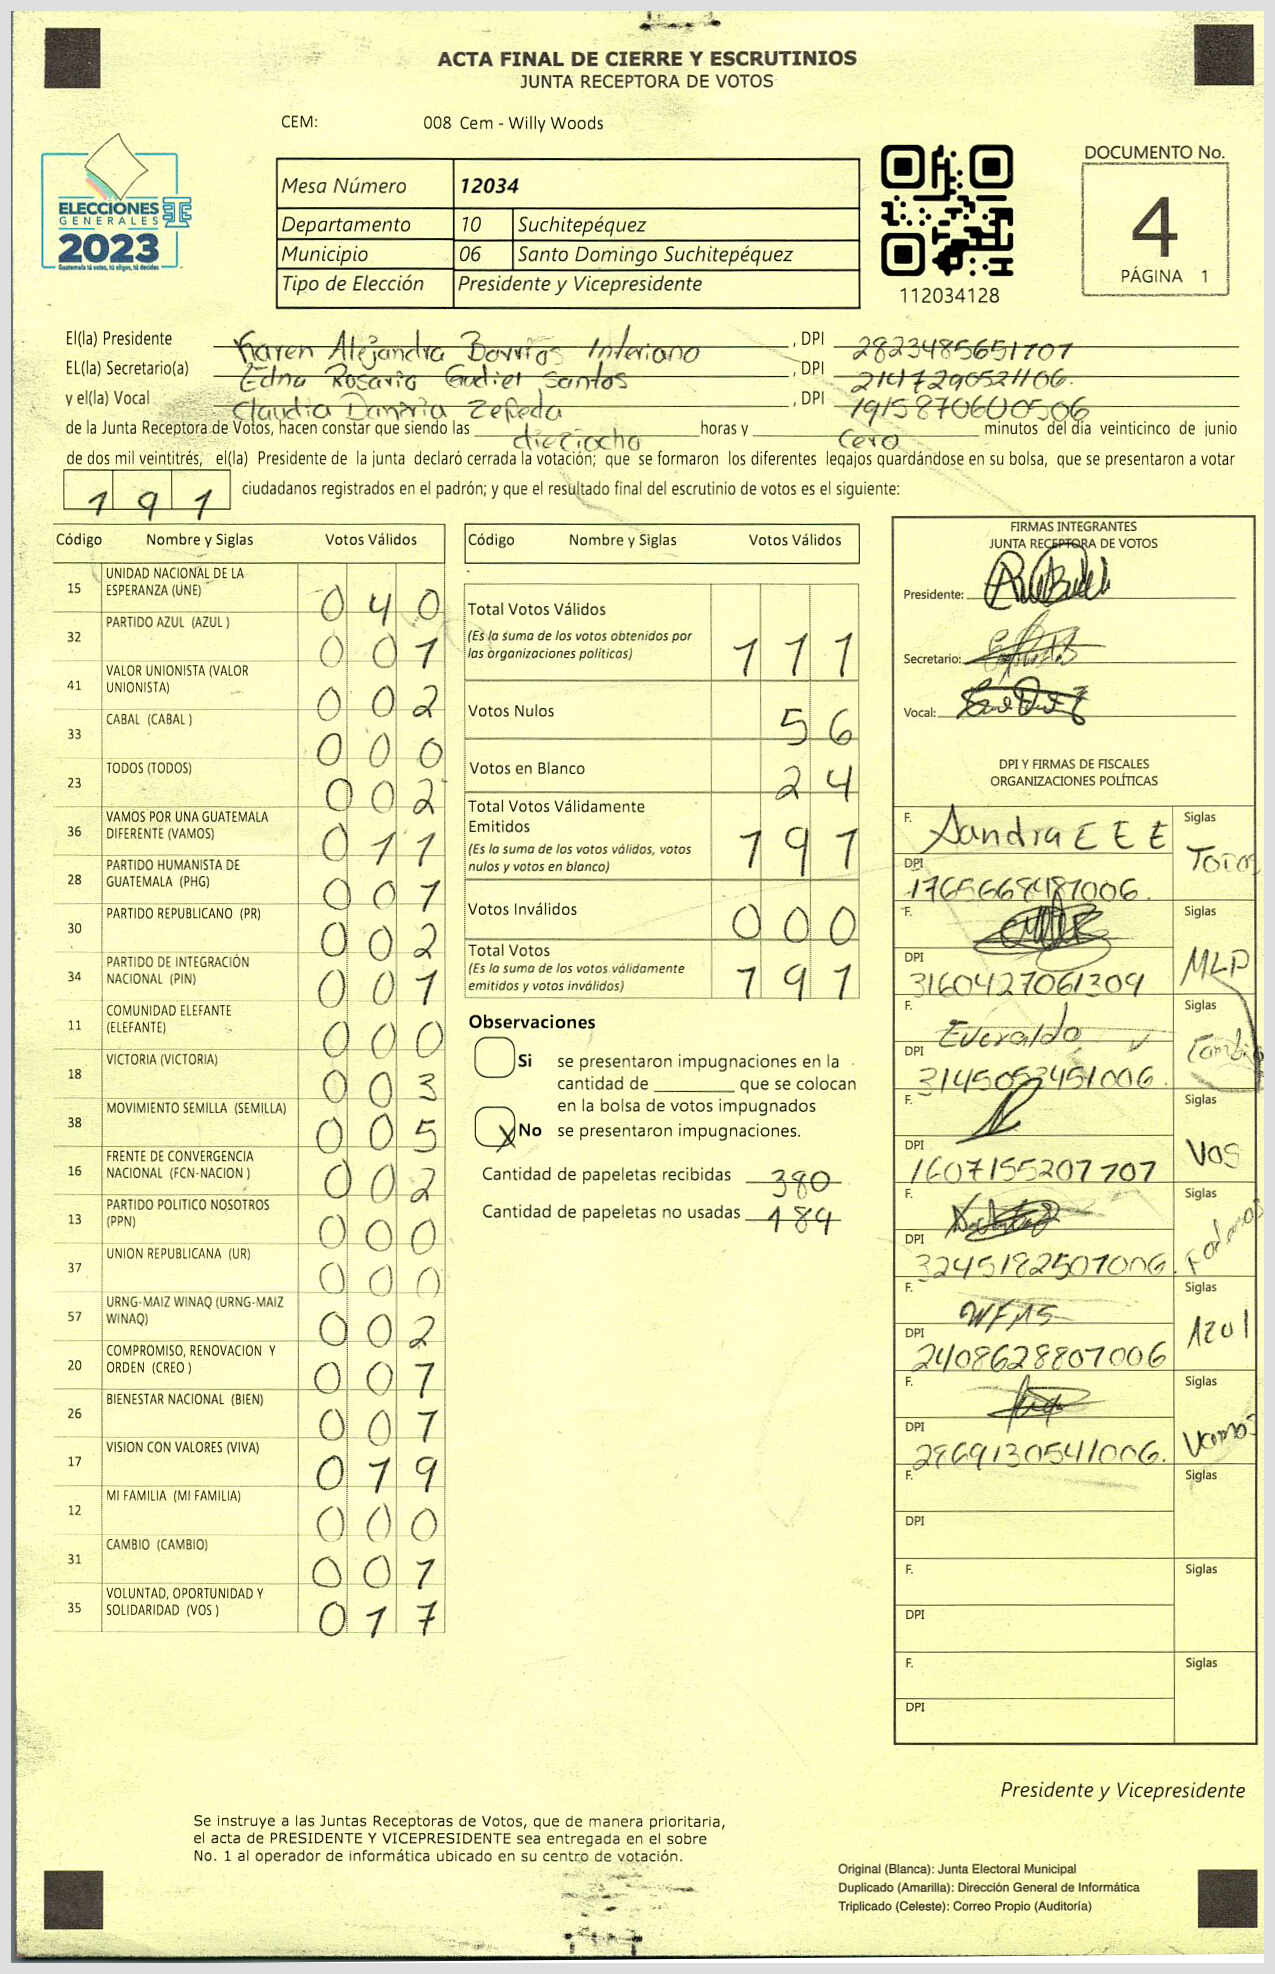 ACTA FINAL DE CIERRE Y ESCRUTINIOS
JUNTA RECEPTORA DE VOTOS
CEM: 008 Cem - Willy Woods
ELECCIONES
GENERALES
2023
Guatemala tú votas, tú eliges, tú decides
Mesa Número 12034
Departamento 10 Suchitepéquez
Municipio 06 Santo Domingo Suchitepéquez
Tipo de Elección Presidente y Vicepresidente
112034128
DOCUMENTO No.
4
PÁGINA 1
El(la) Presidente Karen Alejandra Barrios Interiano , DPI 2823485651707
EL(la) Secretario(a) Edna Rosario Gudiel Santos , DPI 2147290521106.
y el(la) Vocal Claudia Zepeda , DPI 1915870600506
de la Junta Receptora de Votos, hacen constar que siendo las dieciocho horas y cero minutos del día veinticinco de junio
de dos mil veintitrés, el(la) Presidente de la junta declaró cerrada la votación; que se formaron los diferentes legajos guardándose en su bolsa, que se presentaron a votar
191 ciudadanos registrados en el padrón; y que el resultado final del escrutinio de votos es el siguiente:
Código Nombre y Siglas Votos Válidos
15 UNIDAD NACIONAL DE LA
ESPERANZA (UNE) 040
32 PARTIDO AZUL (AZUL ) 001
41 VALOR UNIONISTA (VALOR
UNIONISTA) 002
33 CABAL (CABAL ) 000
23 TODOS (TODOS) 002
36 VAMOS POR UNA GUATEMALA
DIFERENTE (VAMOS) 011
28 PARTIDO HUMANISTA DE
GUATEMALA (PHG) 001
30 PARTIDO REPUBLICANO (PR) 002
34 PARTIDO DE INTEGRACIÓN
NACIONAL (PIN) 001
11 COMUNIDAD ELEFANTE
(ELEFANTE) 000
18 VICTORIA (VICTORIA) 003
38 MOVIMIENTO SEMILLA (SEMILLA) 005
16 FRENTE DE CONVERGENCIA
NACIONAL (FCN-NACION ) 002
13 PARTIDO POLITICO NOSOTROS
(PPN) 000
37 UNION REPUBLICANA (UR) 000
57 URNG-MAIZ WINAQ (URNG-MAIZ
WINAQ) 002
20 COMPROMISO, RENOVACION Y
ORDEN (CREO ) 001
26 BIENESTAR NACIONAL (BIEN) 001
17 VISION CON VALORES (VIVA) 019
12 MI FAMILIA (MI FAMILIA) 000
31 CAMBIO (CAMBIO) 001
35 VOLUNTAD, OPORTUNIDAD Y
SOLIDARIDAD (VOS ) 017
Código Nombre y Siglas Votos Válidos
Total Votos Válidos
(Es la suma de los votos obtenidos por
las organizaciones políticas) 111
Votos Nulos 56
Votos en Blanco 24
Total Votos Válidamente
Emitidos
(Es la suma de los votos válidos, votos
nulos y votos en blanco) 191
Votos Inválidos 000
Total Votos
(Es la suma de los votos válidamente
emitidos y votos inválidos) 191
Observaciones
Si se presentaron impugnaciones en la
cantidad de ________ que se colocan
en la bolsa de votos impugnados
X No se presentaron impugnaciones.
Cantidad de papeletas recibidas 380
Cantidad de papeletas no usadas 189
FIRMAS INTEGRANTES
JUNTA RECEPTORA DE VOTOS
Presidente:
Secretario:
Vocal:
DPI Y FIRMAS DE FISCALES
ORGANIZACIONES POLÍTICAS
F. Sandra E E E Siglas
DPI Todos
1765668481006.
F. Siglas
DPI MLP
3160427061309
F. Everaldo Siglas
DPI Cambio
3145053451006.
F. Siglas
DPI VOS
1607155207707
F. Siglas
DPI Podemos
3245182501006.
F. WFMS Siglas
DPI Azul
2408628807006
F. Siglas
DPI Vamos
2869130541006.
F. Siglas
DPI
F. Siglas
DPI
F. Siglas
DPI
Presidente y Vicepresidente
Se instruye a las Juntas Receptoras de Votos, que de manera prioritaria,
el acta de PRESIDENTE Y VICEPRESIDENTE sea entregada en el sobre
No. 1 al operador de informática ubicado en su centro de votación.
Original (Blanca): Junta Electoral Municipal
Duplicado (Amarilla): Dirección General de Informática
Triplicado (Celeste): Correo Propio (Auditoría)